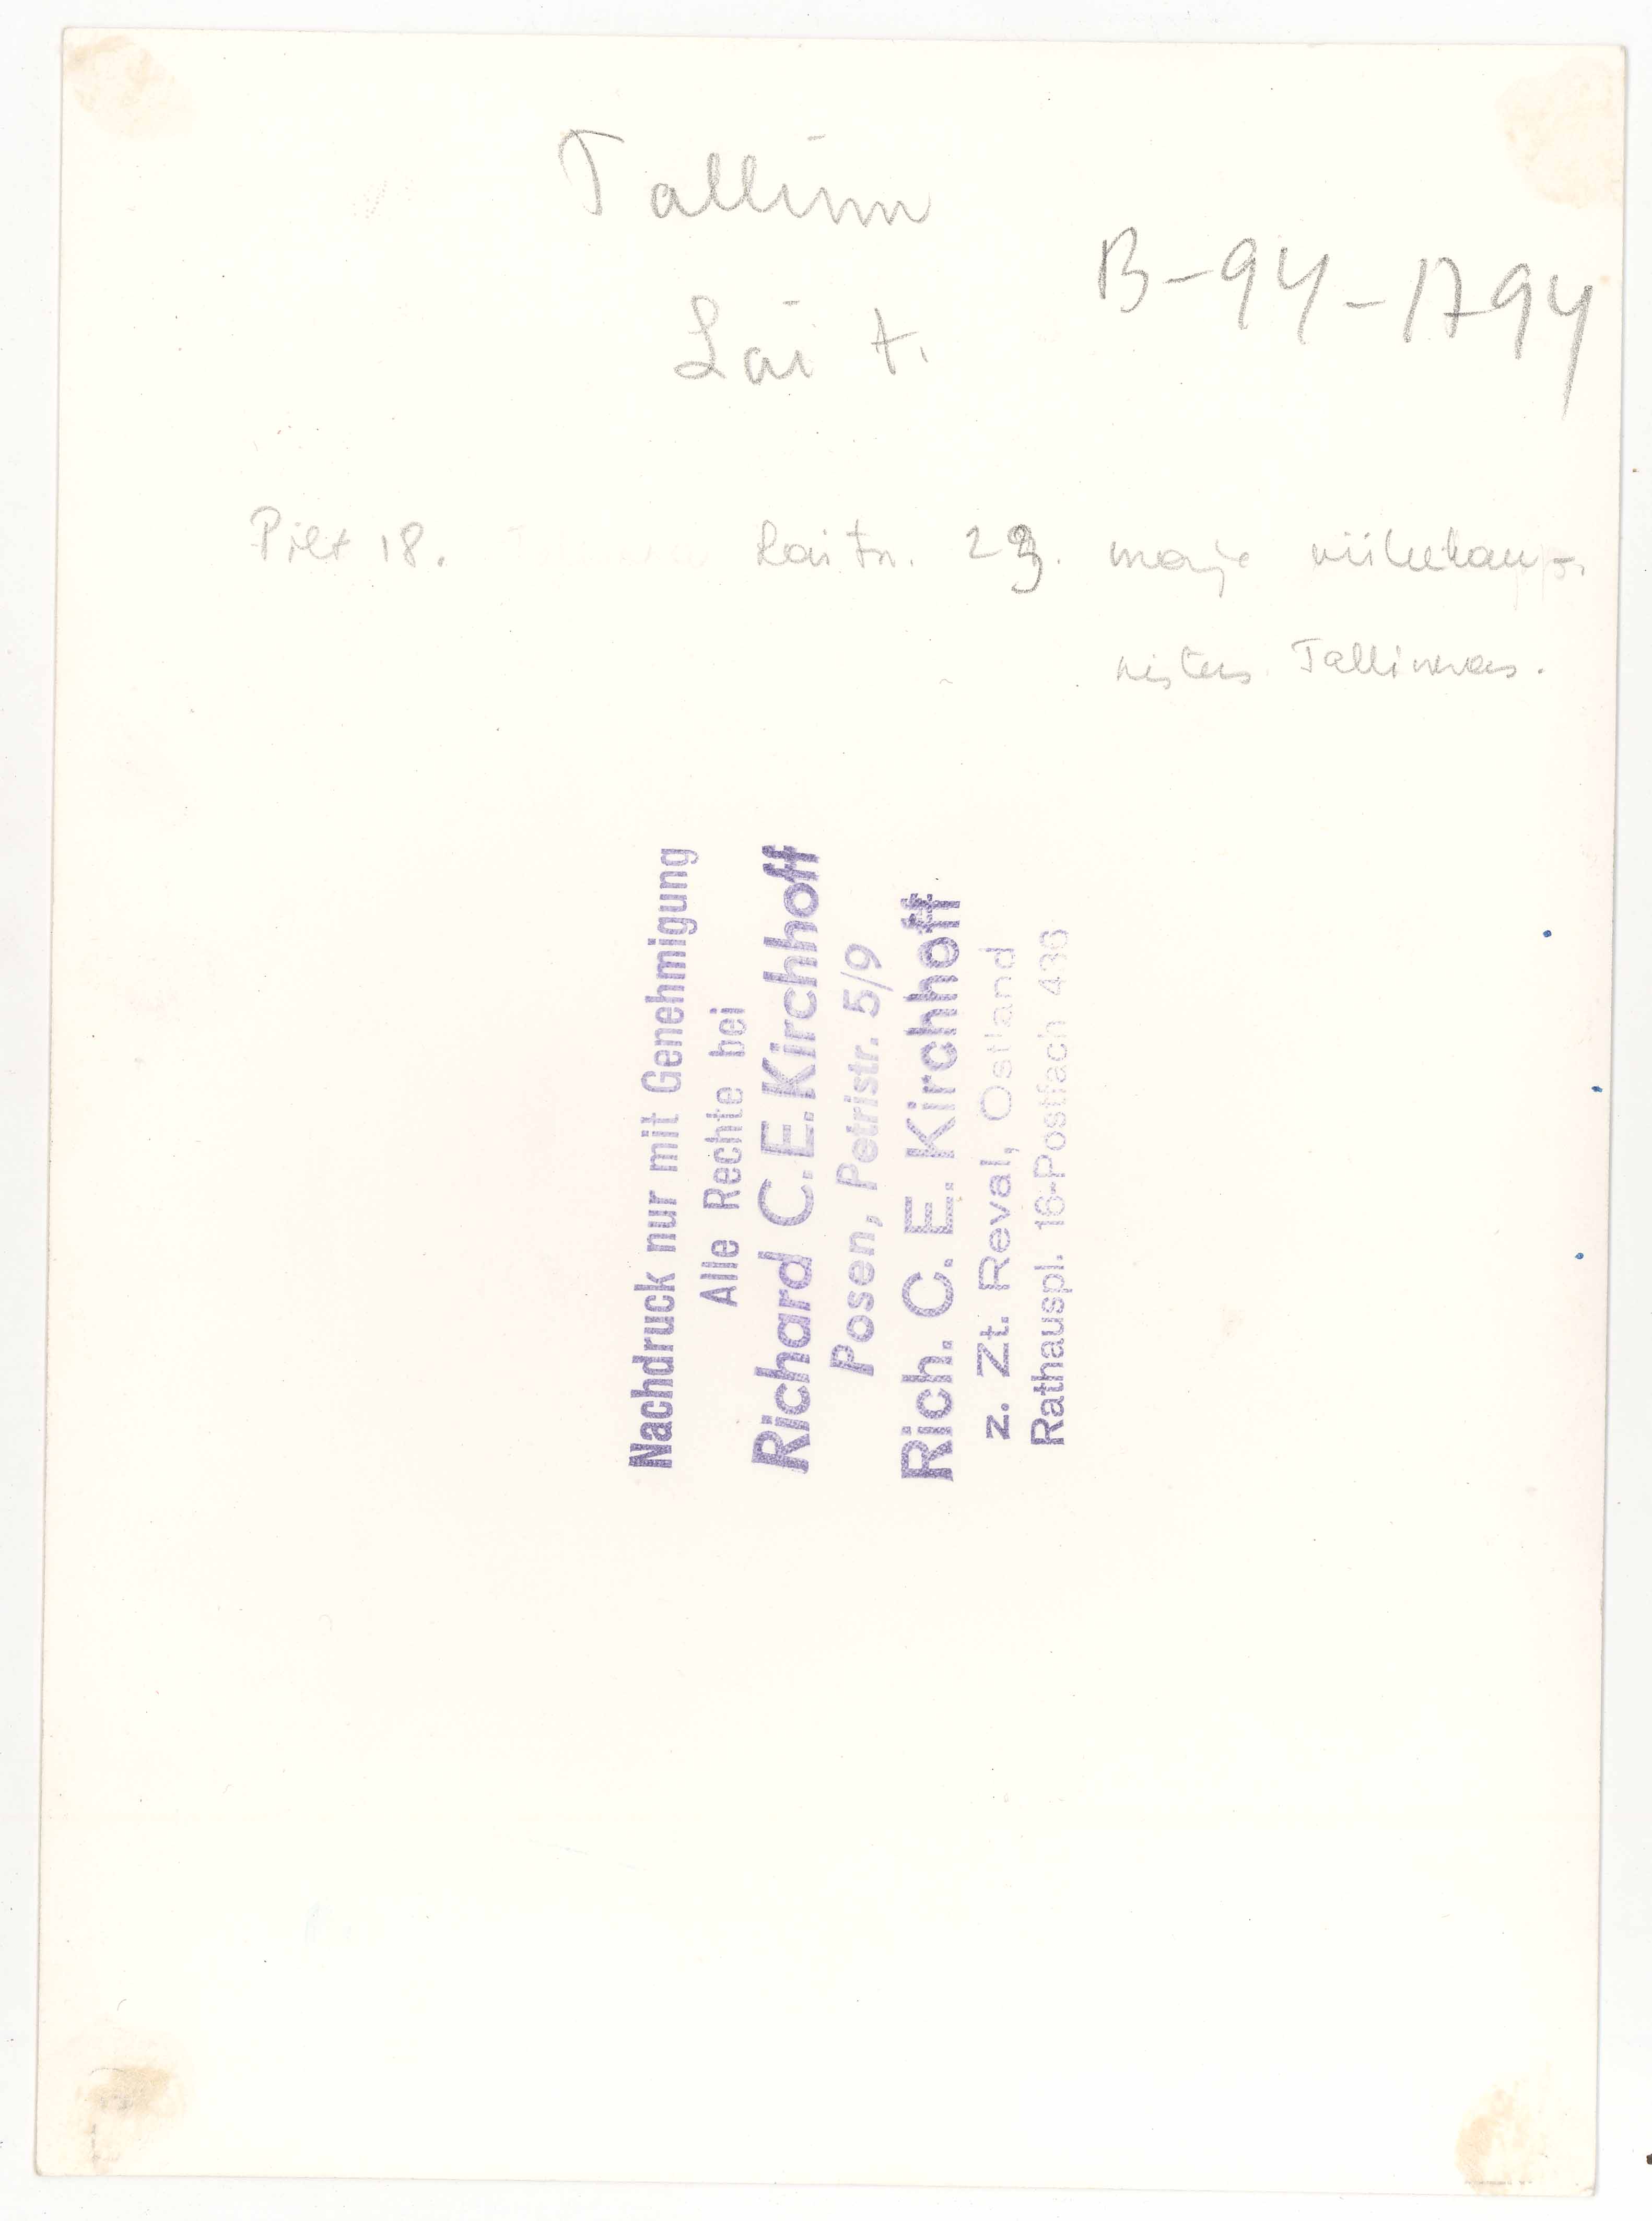 Tallinn
B-94-1794
Lai t.
Pilt 18. Lai tn. 23. maja
Tallinnas.
Nachdruck nur mit Genehmigung
Alle Rechte bei
Richard C.E.Kirchhoff
Posen, Petristr. 5/9
Rich. C. E. Kirchhoff
z. Zt. Reval, Ostland
Rathauspl. 16-Postfach 436